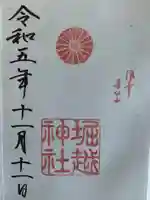 令和五年十一月十一日
堀越
神社